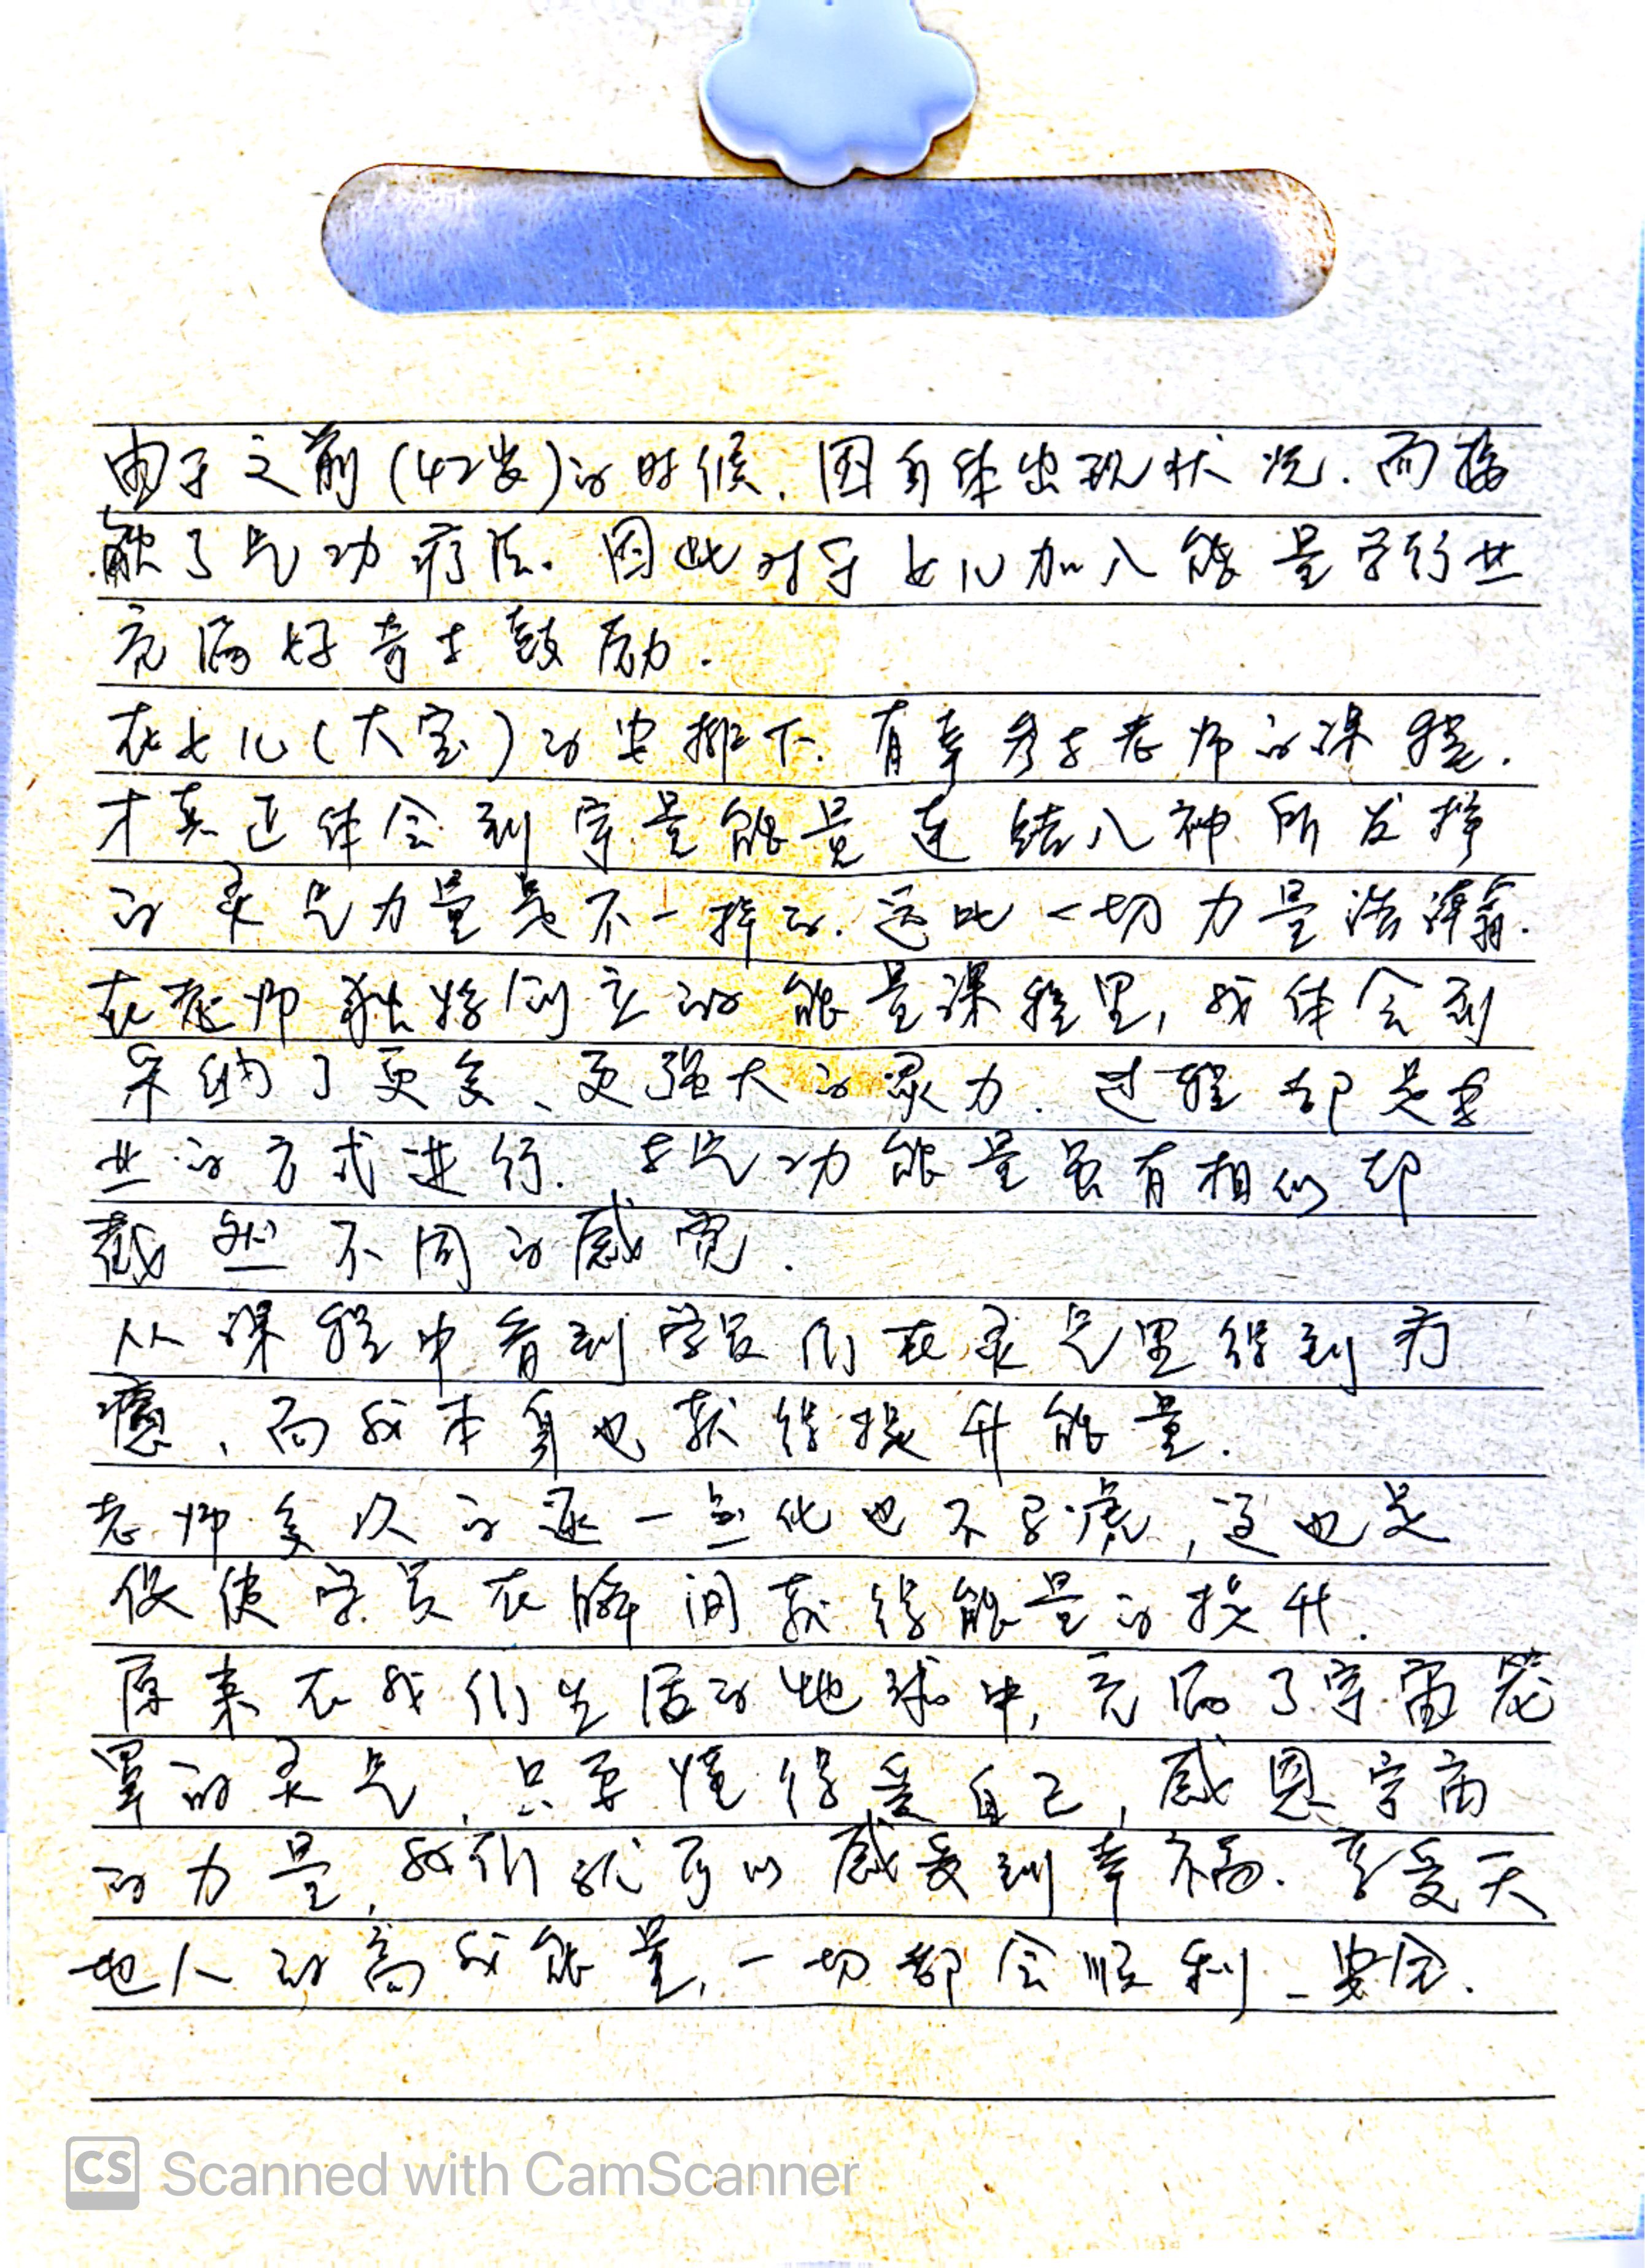 由于之前(42岁)的时候.因身体出现状况.而接
触了气功疗法.因此对于女儿加入能量学行业
充满好奇与鼓励.
在女儿(大宝)的安排下.有幸参与老师的课程.
才真正体会到宇量能量连结入神所发挥
的灵气力量是不一样的.远比一切力量浩瀚.
在老师独特创立的能量课程里,我体会到
采纳了更多、更强大的灵力.过程却是专
业的方式进行.与气功能量虽有相似却
截然不同的感觉.
从课程中看到学员们在灵气里得到疗
癒,而我本身也获得提升能量.
老师多次的逐一点化也不马虎,这也是
促使学员在瞬间获得能量的提升.
原来在我们生活的地球中,充满了宇宙笼
罩的灵气,只要懂得爱自己,感恩宇宙
的力量,我们就可以感受到幸福.享受天
地人的高我能量,一切都会顺利、安全.
CS Scanned with CamScanner